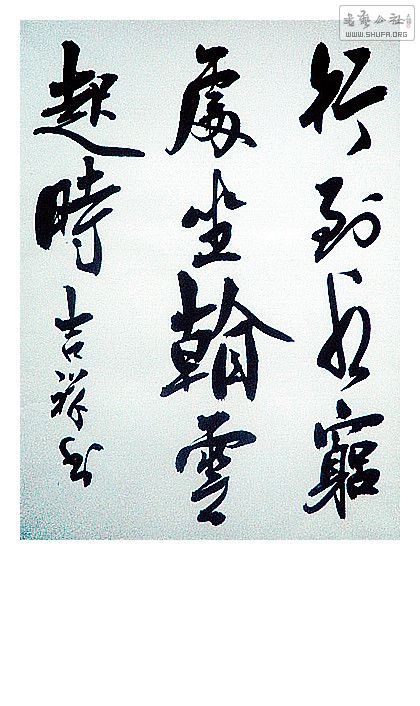 行到水窮
處坐看雲
起時
吉祥书
书艺公社
WWW.SHUFA.ORG